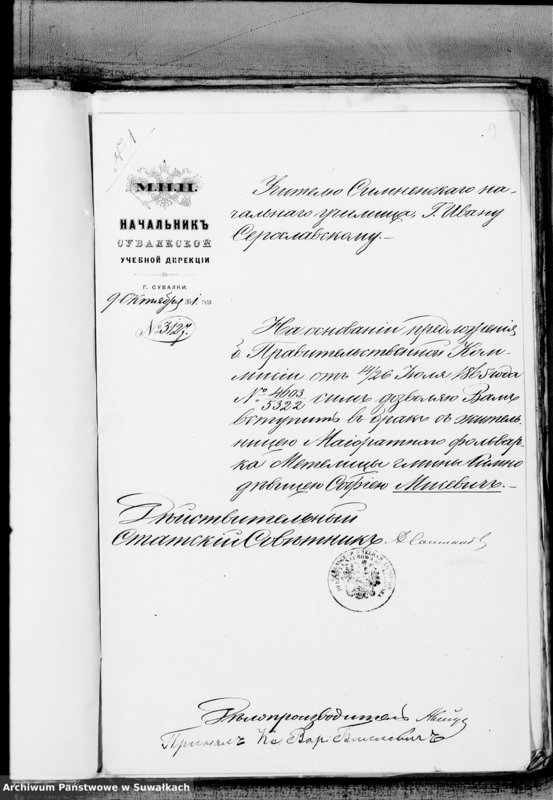 № 1
М.Н.П.
НАЧАЛЬНИКЪ
СУВАЛКСКОЙ
УЧЕБНОЙ ДИРЕКЦІИ
Г. СУВАЛКИ.
9 Октября 1871 ГОДА
№ 3127.
Учителю Сименскаго на-
чальнаго училища, Г. Ивану
Серославскому.-
На основаніи предложенія
б. Правительственной Ком-
мисіи отъ 14/26 Іюля 1865 года
№ 4603/5322 симъ дозволяю Вамъ
вступить въ бракъ съ житель-
ницею Маіоратнаго фольвар-
ка Метелицы гмины Симно
дѣвицею Софіею Мицевичъ.-
Дѣйствительный
Статскій Совѣтникъ
Дѣлопроизводитель
Принялъ Кс
Archiwum Państwowe w Suwałkach